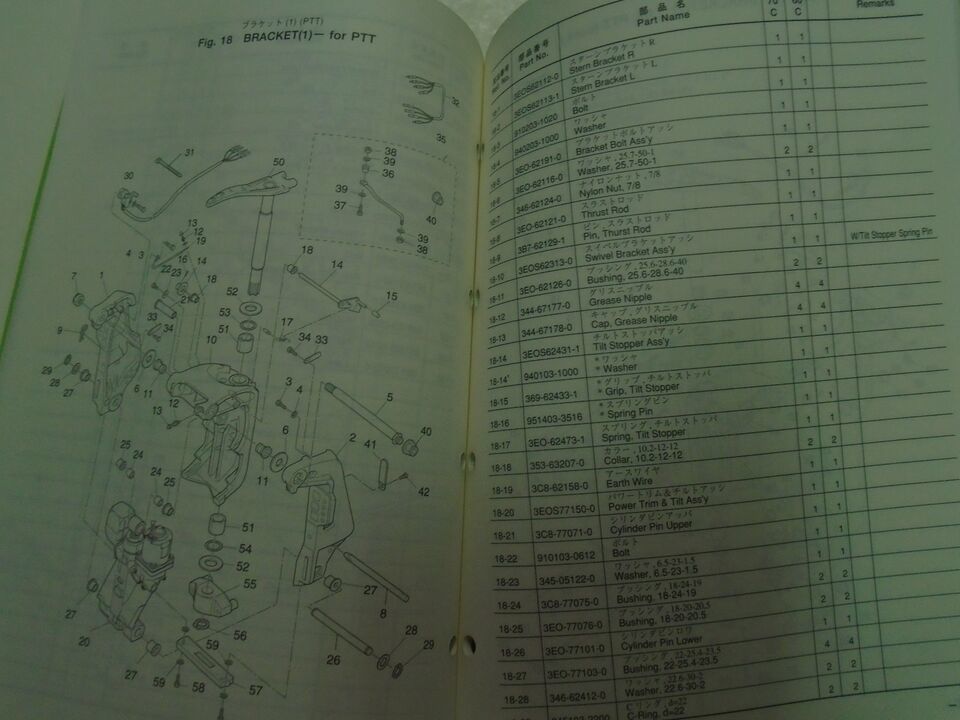 ブラケット(1) (PTT)
Fig. 18 BRACKET(1)ー for PTT
32
35
31
50
38
39
36
30
39
37
40
39
38
13
12
19
4
3
16
14
22
23
18
21
18
14
15
7
1
52
53
51
10
17
34
33
33
34
9
29
28
27
6
11
12
13
3
4
5
40
6
2
41
11
42
25
24
24
25
51
54
52
55
27
8
27
20
56
28
29
59
26
27
59
58
57
部品番号
部品名
70
60
Part No.
Part Name
C
C
Remarks
3EOS62112-0 スターンブラケットR
Stern Bracket R 1 1
18-2 3EOS62113-1 スターンブラケットL
Stern Bracket L 1 1
18-3 910203-1020 ボルト
Bolt 1 1
18-4 940203-1000 ワッシャ
Washer 1 1
18-5 3EO-62191-0 ブラケットボルトアッシ
Bracket Bolt Ass'y 1 1
18-6 3EO-62116-0 ワッシャ, 25.7-50-1
Washer, 25.7-50-1 2 2
18-7 346-62124-0 ナイロンナット, 7/8
Nylon Nut, 7/8 1 1
18-8 3EO-62121-0 スラストロッド
Thrust Rod 1 1
18-9 3B7-62129-1 ピン, スラストロッド
Pin, Thurst Rod 1 1
18-10 3EOS62313-0 スイベルブラケットアッシ
Swivel Bracket Ass'y 1 1 W/Tilt Stopper Spring Pin
18-11 3EO-62126-0 ブッシング, 25.6-28.6-40
Bushing, 25.6-28.6-40 2 2
18-12 344-67177-0 グリスニップル
Grease Nipple 4 4
18-13 344-67178-0 キャップ, グリスニップル
Cap, Grease Nipple 4 4
18-14 3EOS62431-1 チルトストッパアッシ
Tilt Stopper Ass'y 1 1
18-14' 940103-1000 *ワッシャ
* Washer 1 1
18-15 369-62433-1 *グリップ, チルトストッパ
* Grip, Tilt Stopper 1 1
18-16 951403-3516 *スプリングピン
* Spring Pin 1 1
18-17 3EO-62473-1 スプリング, チルトストッパ
Spring, Tilt Stopper 1 1
18-18 353-63207-0 カラー, 10.2-12-12
Collar, 10.2-12-12 2 2
18-19 3C8-62158-0 アースワイヤ
Earth Wire 1 1
18-20 3EOS77150-0 パワートリム&チルトアッシ
Power Trim & Tilt Ass'y 1 1
18-21 3C8-77071-0 シリンダピンアッパ
Cylinder Pin Upper 1 1
18-22 910103-0612 ボルト
Bolt 1 1
18-23 345-05122-0 ワッシャ, 6.5-23-1.5
Washer, 6.5-23-1.5 1 1
18-24 3C8-77075-0 ブッシング, 18-24-19
Bushing, 18-24-19 2 2
18-25 3EO-77076-0 ブッシング, 18-20-20.5
Bushing, 18-20-20.5 2 2
18-26 3EO-77101-0 シリンダピンロワ
Cylinder Pin Lower 1 1
18-27 3EO-77103-0 ブッシング, 22-25.4-23.5
Bushing, 22-25.4-23.5 4 4
18-28 346-62412-0 ワッシャ, 22.6-30-2
Washer, 22.6-30-2 2 2
Cリング, d=22
C-Ring, d=22 2 2